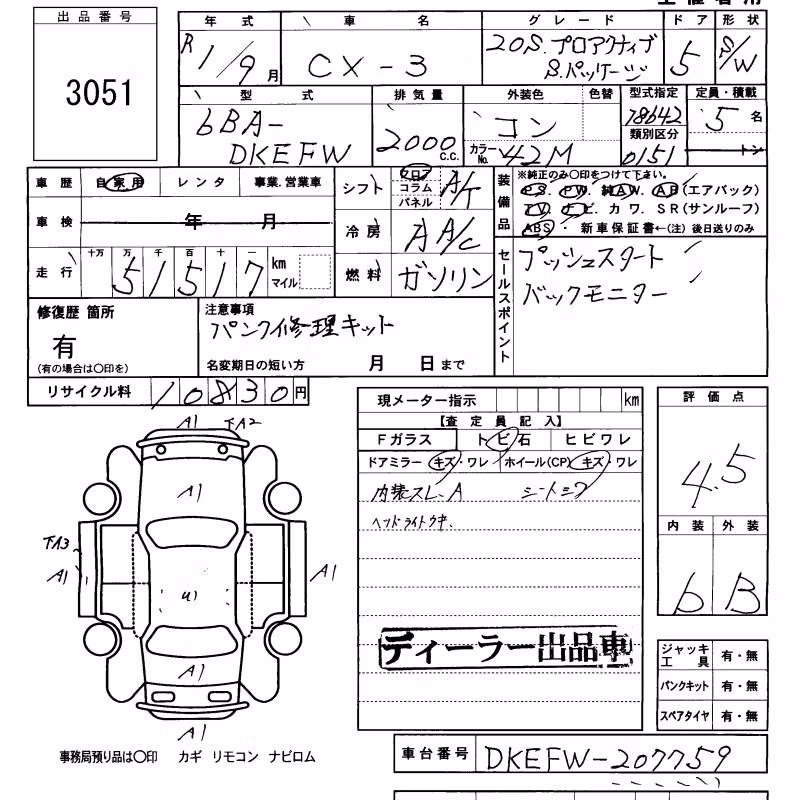 出品番号
3051
年式 車名 グレード ドア 形状
R1/9月 CX-3 20S.プロアクティブ 5 S/W
S.パッケージ
型式 排気量 外装色 色替 型式指定 定員・積載
6BA- 2000 コン 78642 5名
DKEFW c.c. カラーNo. 42M 類別区分 トン
0151
車歴 自家用 レンタ 事業.営業車
シフト フロア コラム パネル A/T
装備品 ※純正のみ〇印をつけて下さい。
PS. PW. 純AW. AB(エアバック)
TV. ナビ. カワ. SR(サンルーフ)
ABS・ 新車保証書←(注) 後日送りのみ
車検 年 月
冷房 AA/C
走行 十万 万 千 百 十 一
51517 km マイル
燃料 ガソリン
セールスポイント
プッシュスタート
バックモニター
修復歴 箇所
有
(有の場合は〇印を)
注意事項
パンク修理キット
名変期日の短い方 月 日まで
リサイクル料 10830円
現メーター指示 km
【査定員記入】
Fガラス トビ石 ヒビワレ
ドアミラー キズ・ワレ ホイール(CP) キズ・ワレ
内装スレ.A シートシワ
ヘッドライトウ中.
ディーラー出品車
評価点
4.5
内装 外装
b B
ジャッキ工具 有・無
パンクキット 有・無
スペアタイヤ 有・無
A1 下A2
A1
下A3
A1 A1
U1
A1
A1
事務局預り品は〇印 カギ リモコン ナビロム
車台番号 DKEFW-207759